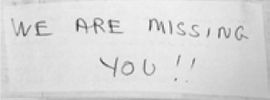 WE ARE MISSING
YOU!!